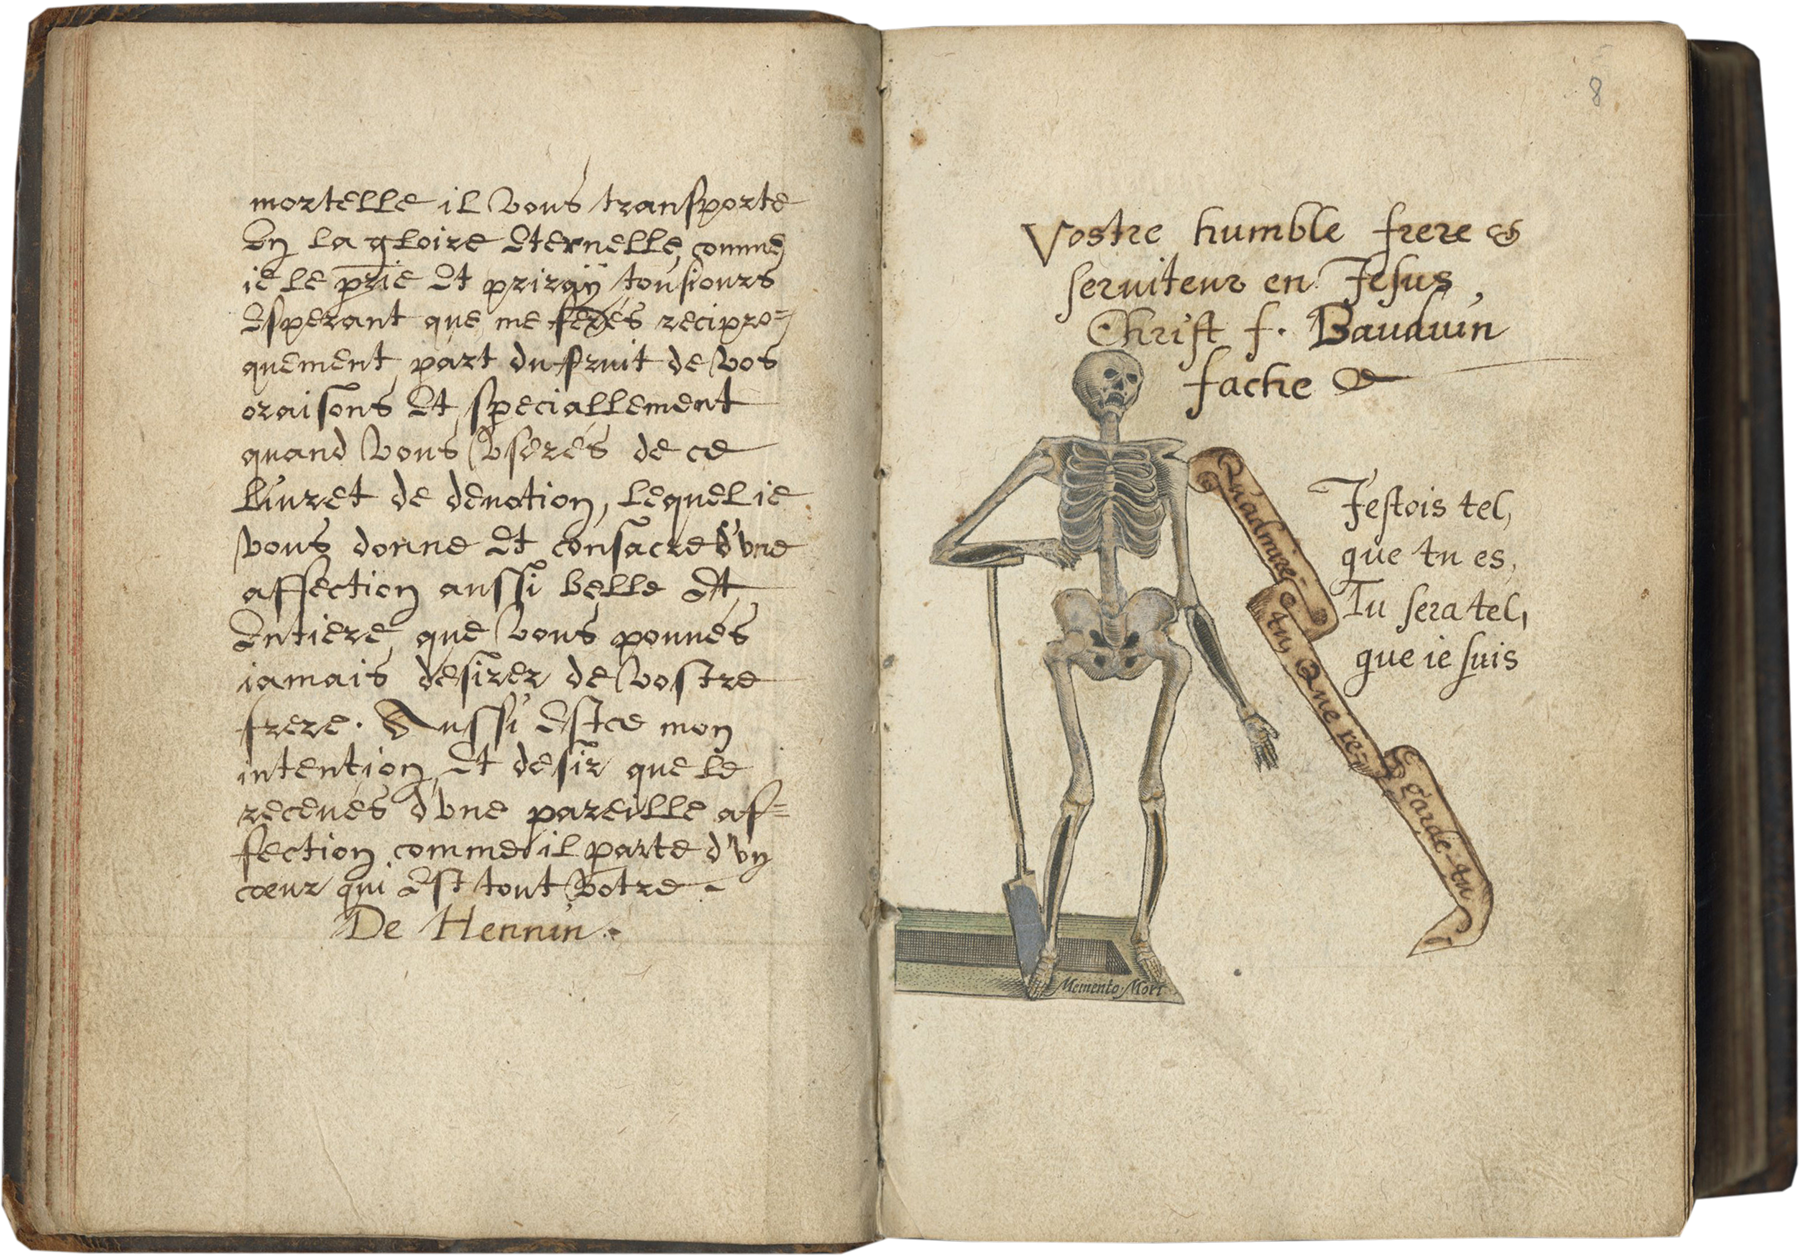 mortelle il vous transporte
En la gloire Eternelle, comme
ie le prie Et priray tousiours
Esperant que me ferés recipro=
quement part du fruit de vos
oraisons Et speciallement
quand vous vserés de ce
liuret de deuotion, lequel ie
vous donne Et consacre d'vne
affection aussi belle Et
Entiere que vous pouués
iamais désirer de vostre
frere. Aussi Est ce mon
intention Et desir que le
receués d'vne pareille af=
fection comme il parte d'vn
cœur qui Est tout votre.
De Hennin.
8
Vostre humble frere &
seruiteur en Jesus
Christ f. Bauduin
fache
Qu'admire-
tu, Que re-
garde-tu
J'estois tel,
que tu es,
Tu sera tel,
que ie suis
Memento Mori